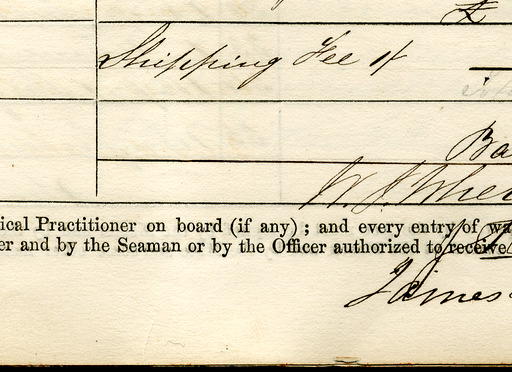 £
Shipping Fee 1/
Ba
W. J. Whe
ical Practitioner on board (if any) ; and every entry of wa
er and by the Seaman or by the Officer authorized to receive
James